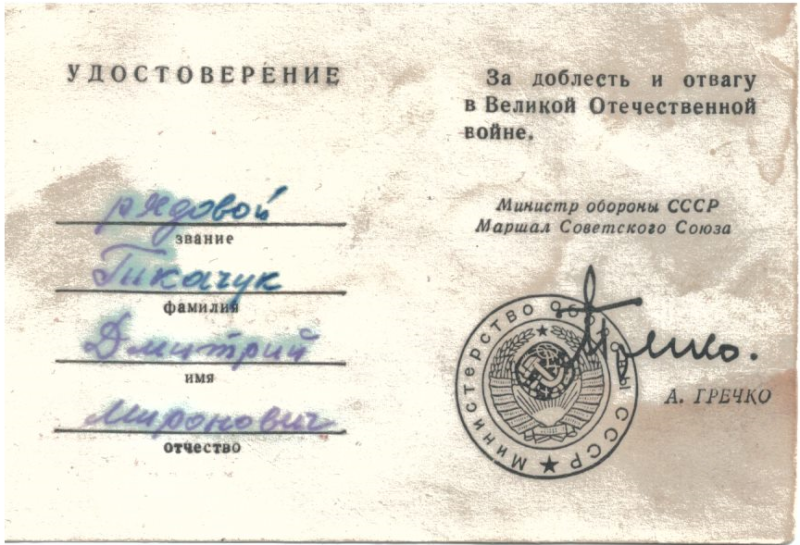 УДОСТОВЕРЕНИЕ
рядовой
звание
Гикачук
фамилия
Дмитрий
имя
миронович
отчество
За доблесть и отвагу
в Великой Отечественной
войне.
Министр обороны СССР
Маршал Советского Союза
Министерство обороны СССР
А. ГРЕЧКО